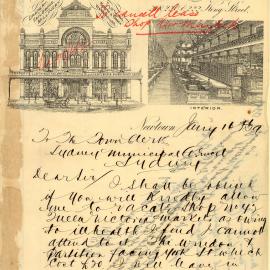 To cancell lease
King Street.
INTERIOR.
Newtown Jany 10th
To The Town Clerk
Sydney Municipal Council
Sydney
Dear Sir I shall be obliged
if you will kindly allow
me to vacate the
Queen Victoria Market as owing
to ill health I find I cannot
attend to it. The window &
partition facing York St which
cost £30 I will leave in